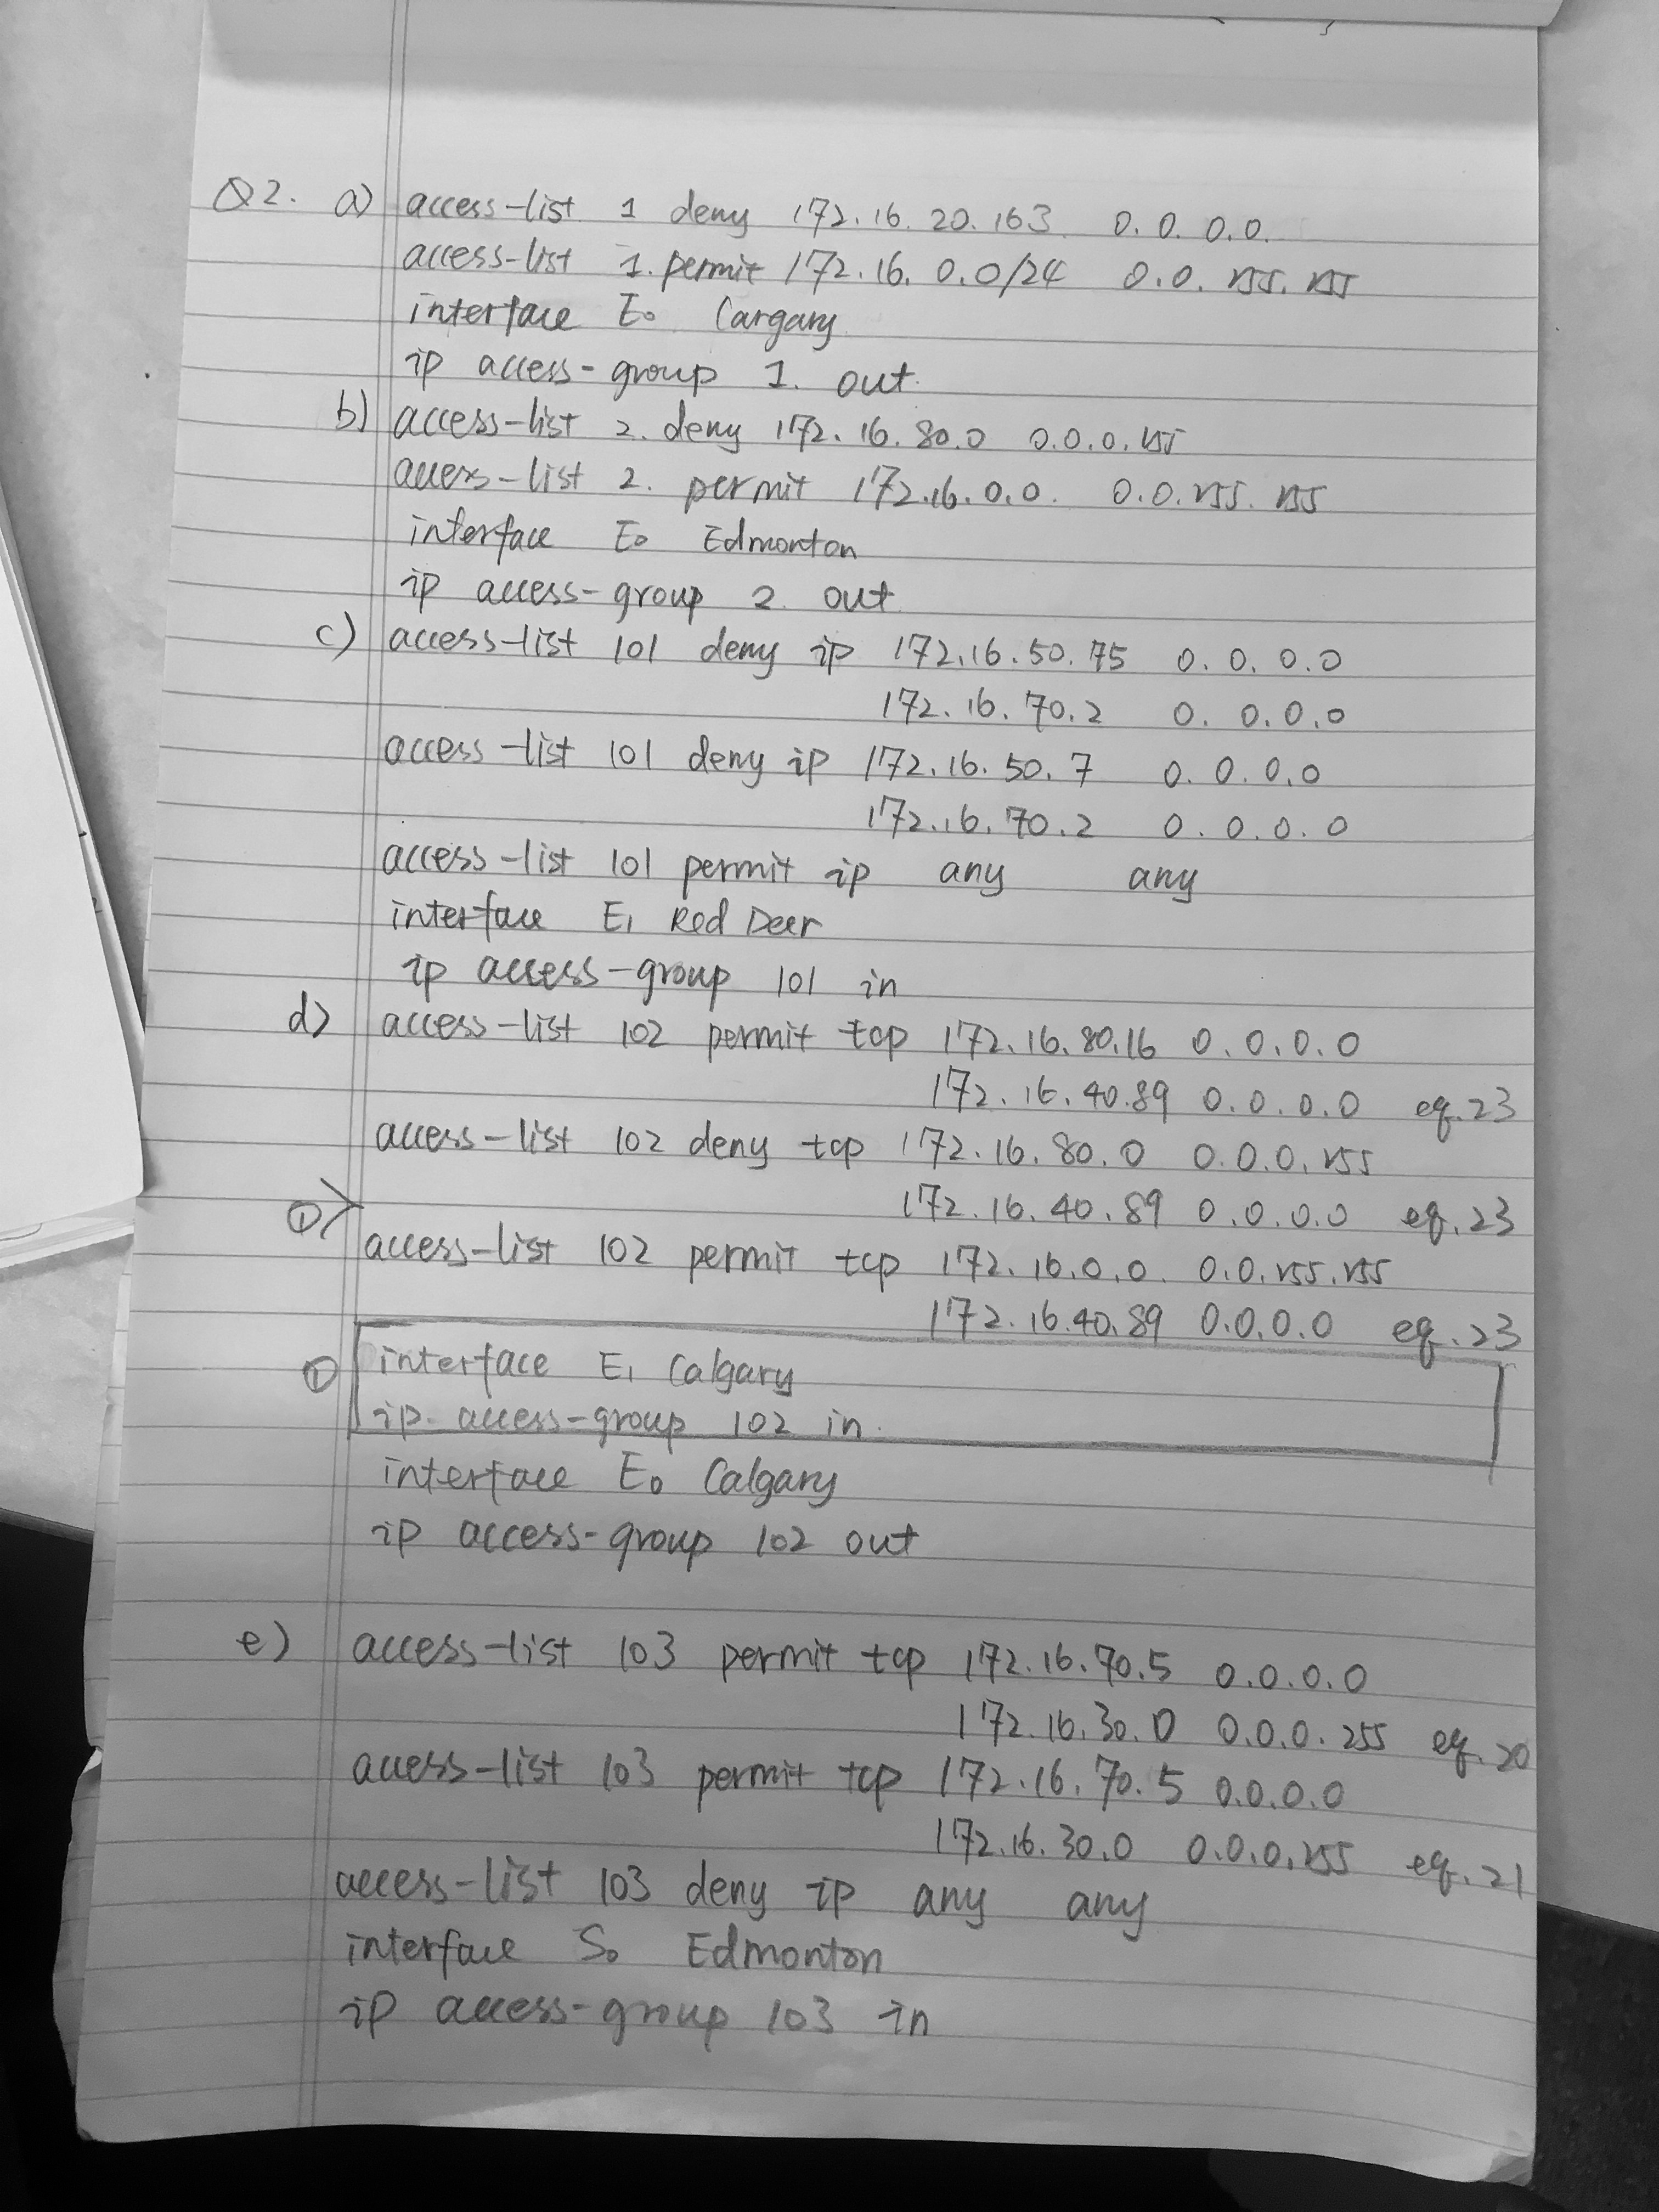 Q2. a) access-list 1 deny 172.16.20.163 0.0.0.0.
access-list 1. permit 172.16.0.0/24 0.0.255.255
interface E0 Cargary
ip access-group 1. out.
b) access-list 2. deny 172.16.80.0 0.0.0.255
access-list 2. permit 172.16.0.0. 0.0.255.255
interface E0 Edmonton
ip access-group 2 out
c) access-list 101 deny ip 172.16.50.75 0.0.0.0
172.16.70.2 0.0.0.0
access-list 101 deny ip 172.16.50.7 0.0.0.0
172.16.70.2 0.0.0.0
access-list 101 permit ip any any
interface E1 Red Deer
ip access-group 101 in
d) access-list 102 permit tcp 172.16.80.16 0.0.0.0
172.16.40.89 0.0.0.0 eq.23
access-list 102 deny tcp 172.16.80.0 0.0.0.255
172.16.40.89 0.0.0.0 eq.23
① > access-list 102 permit tcp 172.16.0.0. 0.0.255.255
172.16.40.89 0.0.0.0 eq.23
① interface E1 Calgary
ip access-group 102 in.
interface E0 Calgary
ip access-group 102 out
e) access-list 103 permit tcp 172.16.70.5 0.0.0.0
172.16.30.0 0.0.0.255 eq.20
access-list 103 permit tcp 172.16.70.5 0.0.0.0
172.16.30.0 0.0.0.255 eq.21
access-list 103 deny ip any any
interface S0 Edmonton
ip access-group 103 in